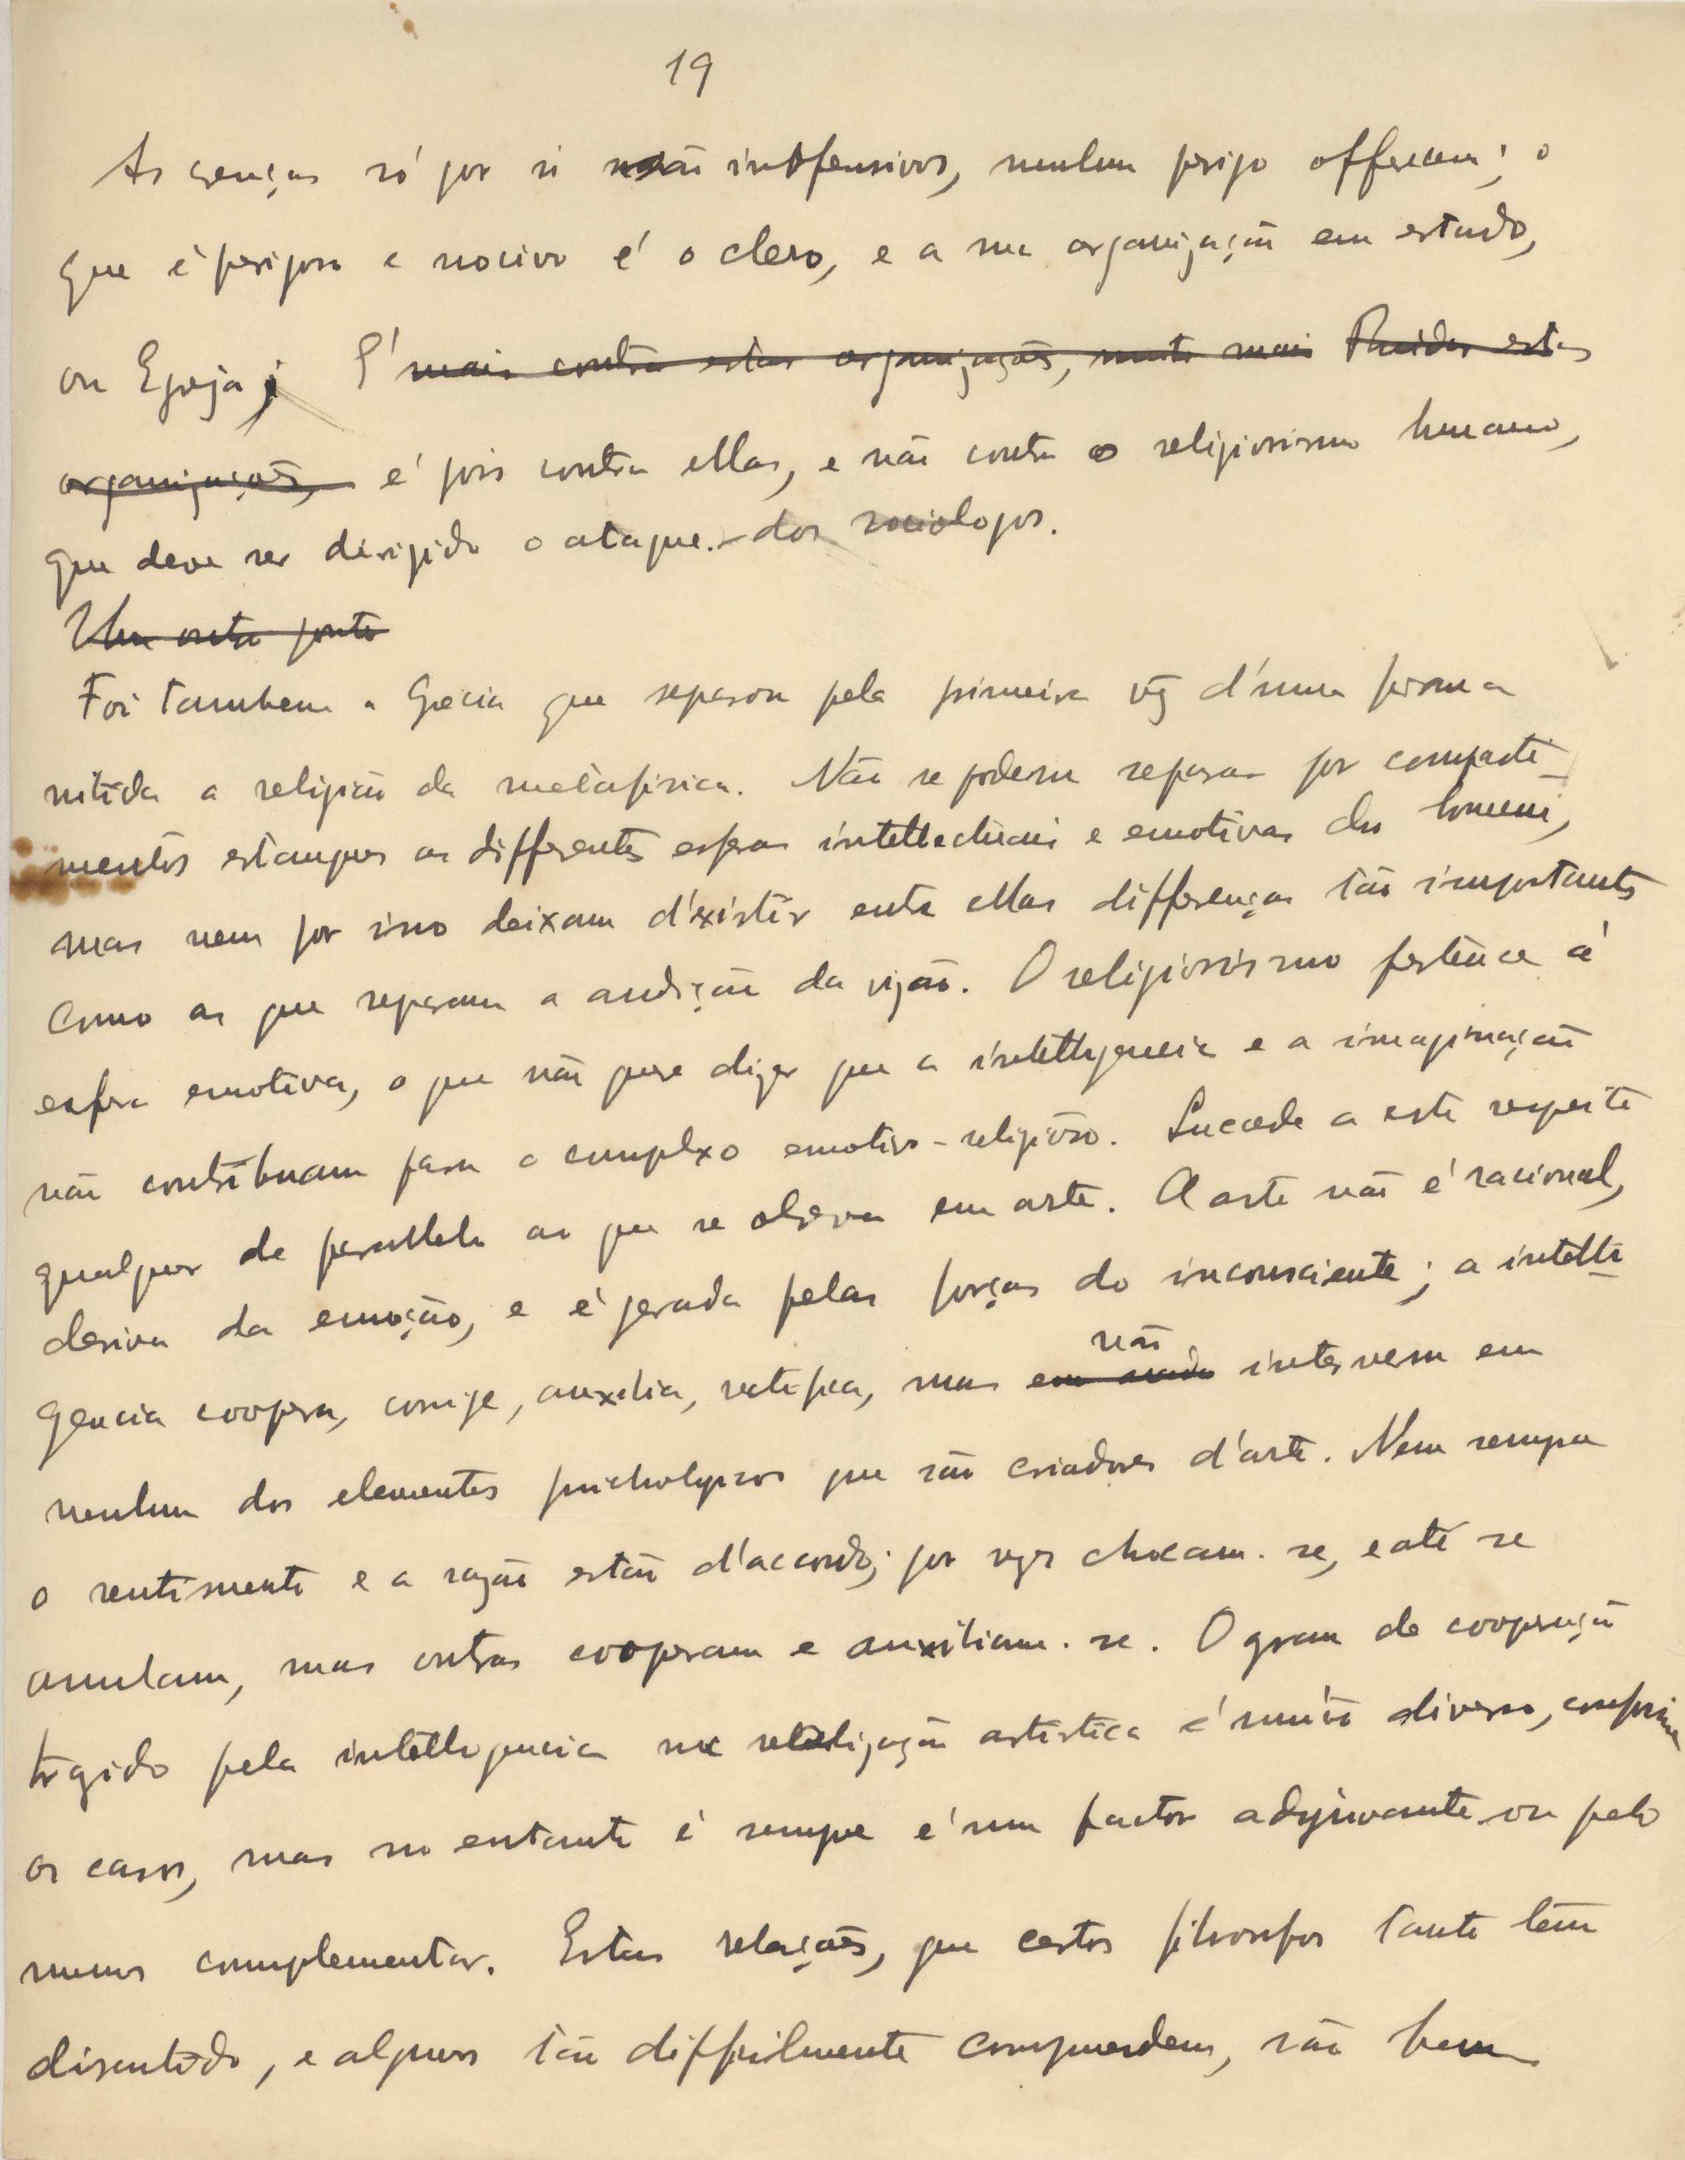 19
As crenças só por si são inoffensivas, nenhum perigo offerecem; o
que é perigoso e nocivo é o clero, e a sua organização em estado,
ou Egreja; É mais contra estas organizações, muito mais estas
organizações, é pois contra ellas, e não contra o religiosismo humano,
que deve ser dirigido o ataque. dos sociologos.
Um outro ponto
Foi tambem a Grecia que separou pela primeira vez d'uma forma
nitida a religião da metafisica. Não se podem separar por comparti-
mentos estanques as differentes esferas intellectuais e emotivas do homem,
mas nem por isso deixam d'existir entre ellas differenças tão importantes
como as que separam a audição da visão. O religiosismo pertence á
esfera emotiva, o que não quere dizer que a intelligencia e a imaginação
não contribuam para o complexo emotivo-religioso. Sucede a este respeito
qualquer de parallelo ao que se observa em arte. A arte não é racional,
deriva da emoção, e é gerada pelas forças do inconsciente; a intelli-
gencia coopera, corrige, auxilia, ratifica, mas em nada não intervem em
nenhum dos elementos psichologicos que são criadores d'arte. Nem sempre
o sentimento e a razão estão d'accordo; por vezes chocam-se, e até se
anulam, mas outras cooperam e auxiliam-se. O grau de cooperação
trazido pela intelligencia na realização artistica é muito diverso, conforme
os casos, mas no entanto é sempre é um factor adjuvante ou pelo
menos complementar. Estas relações, que certos filosofos tanto têm
discutido, e alguns tão difficilmente comprendem, são bem